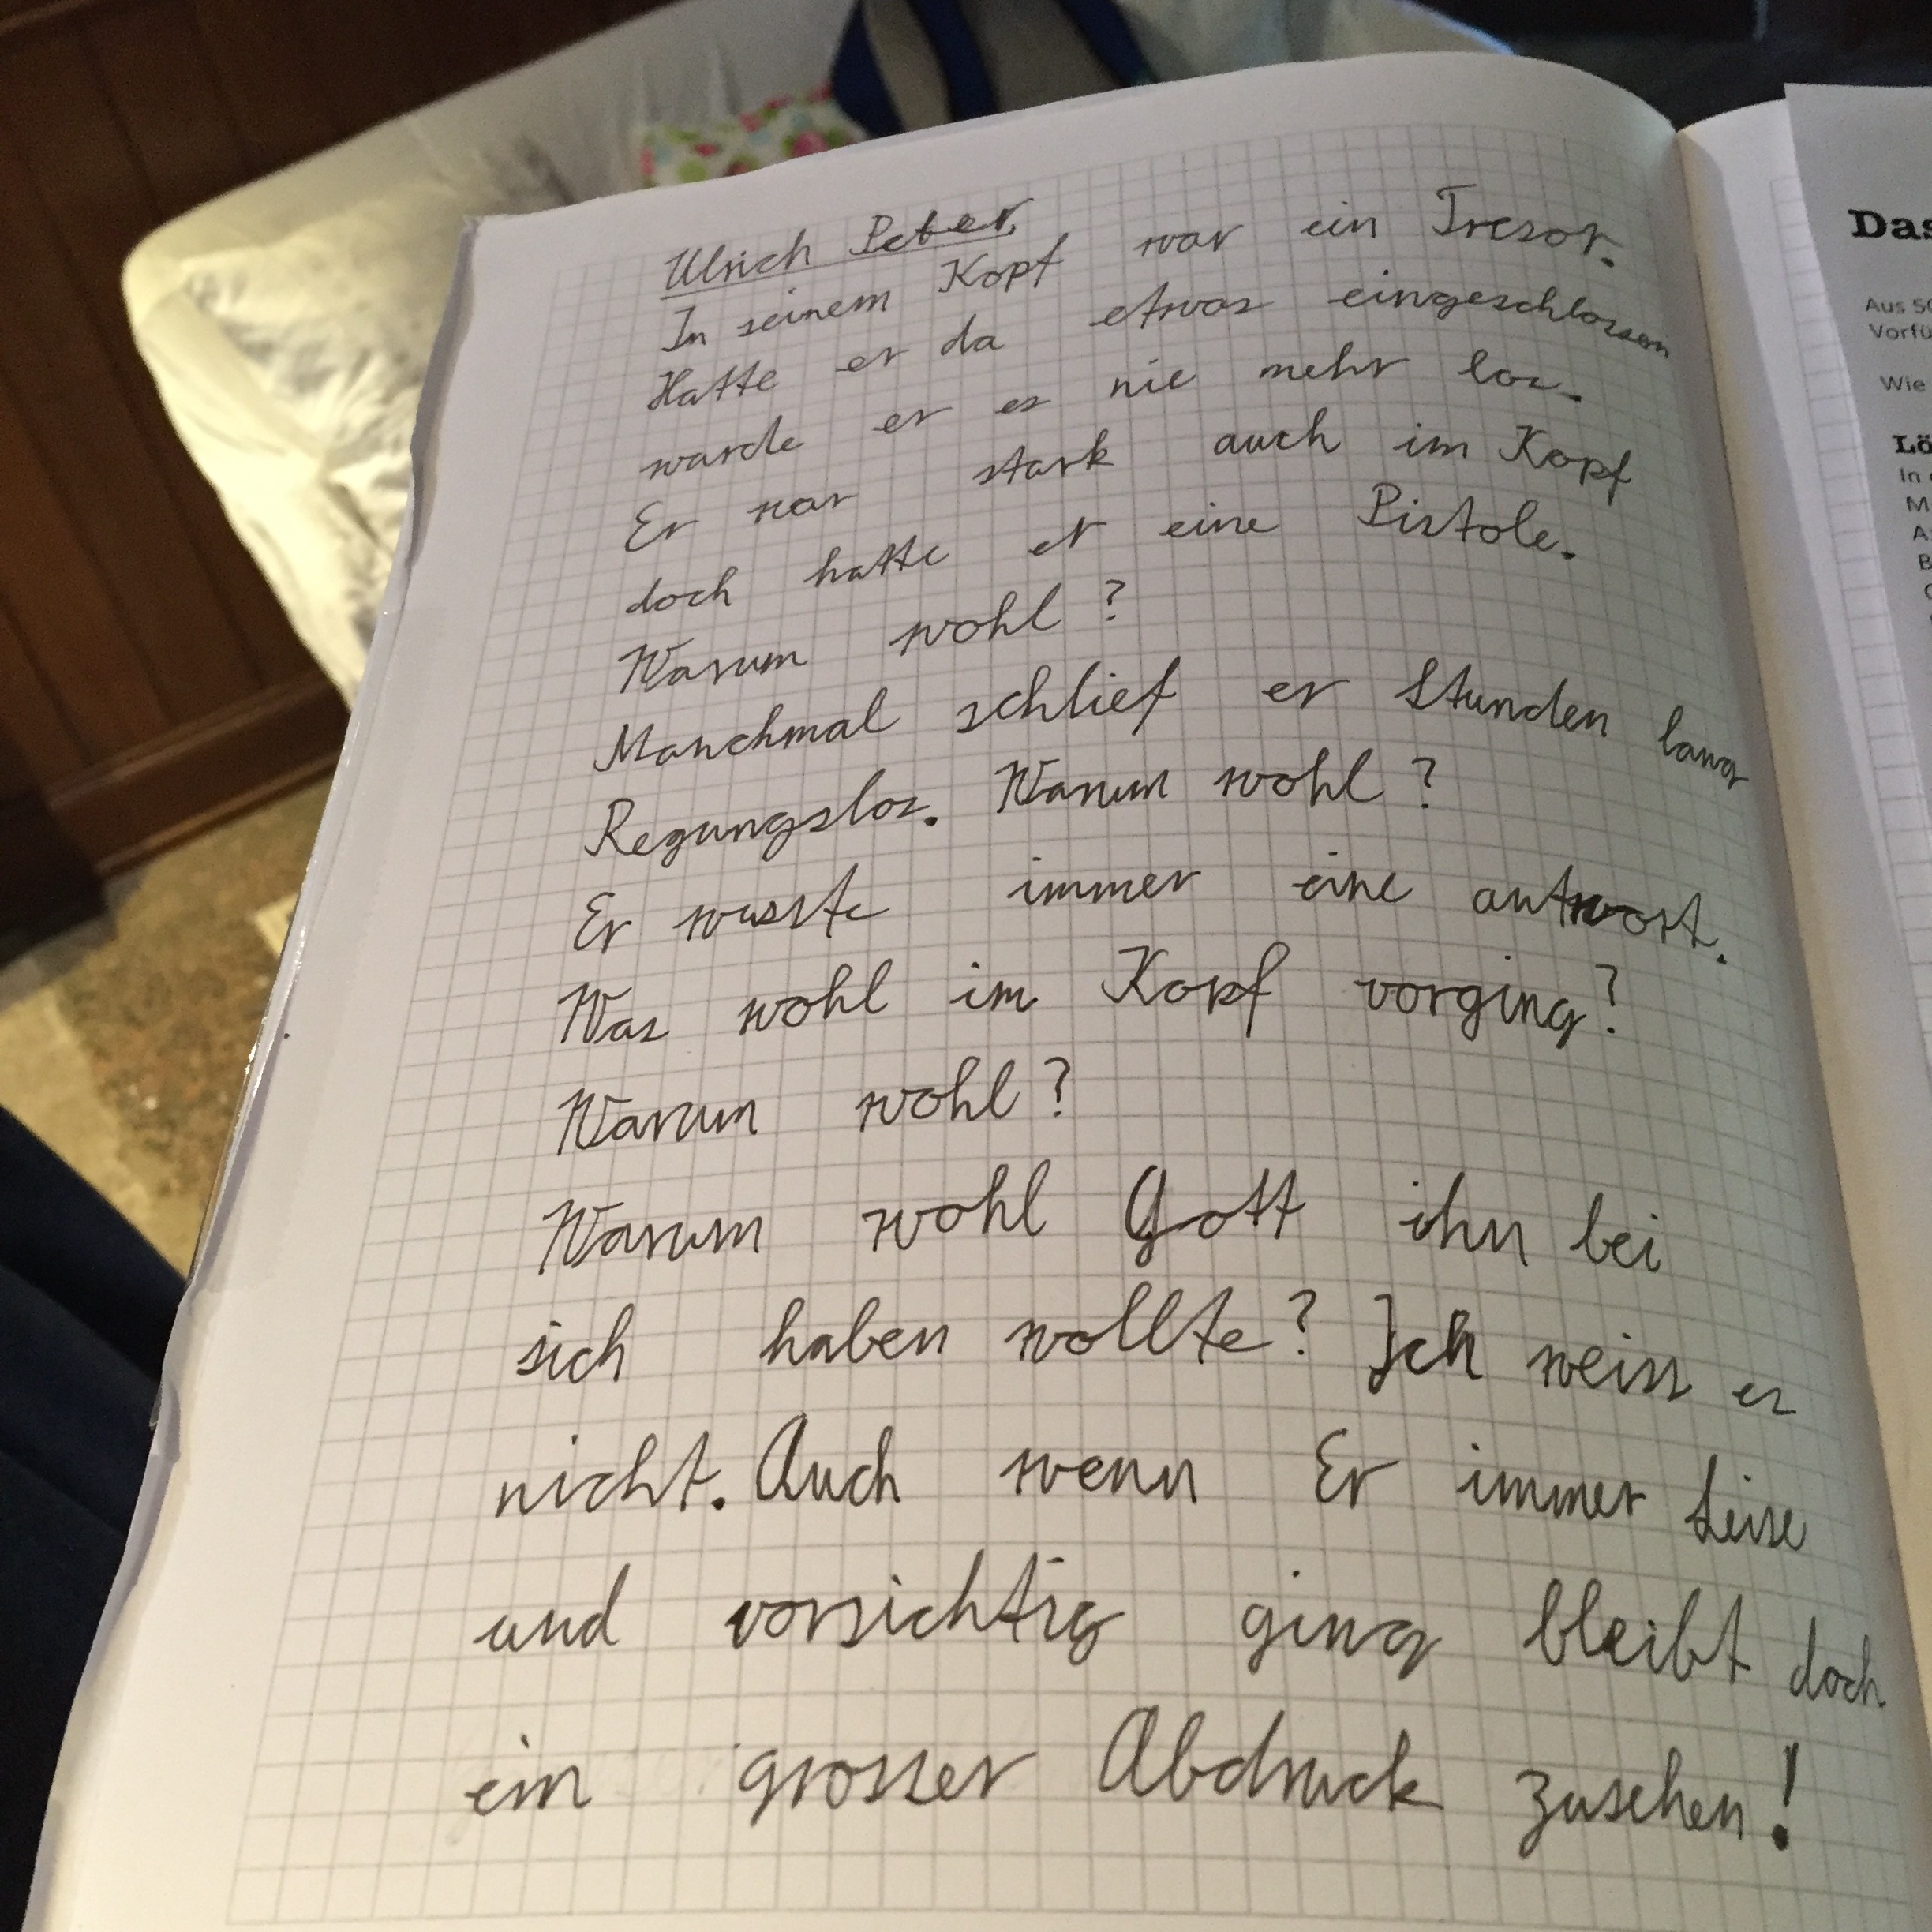 Ulrich Peter
In seinem Kopf war ein Tresor.
Hatte er da etwas eingeschlossen
wurde er es nie mehr los.
Er war stark auch im Kopf
doch hatte er eine Pistole.
Warum wohl?
Manchmal schlief er Stunden lang
Regungslos. Warum wohl?
Er wusste immer eine antwort.
Was wohl im Kopf vorging?
Warum wohl?
Warum wohl Gott ihn bei
sich haben wollte? Ich weiss es
nicht. Auch wenn Er immer Leise
und vorsichtig ging bleibt doch
ein grosser Abdruck zusehen!
Das
Aus 50
Vorfü
Wie
Lö
In
M
A
B